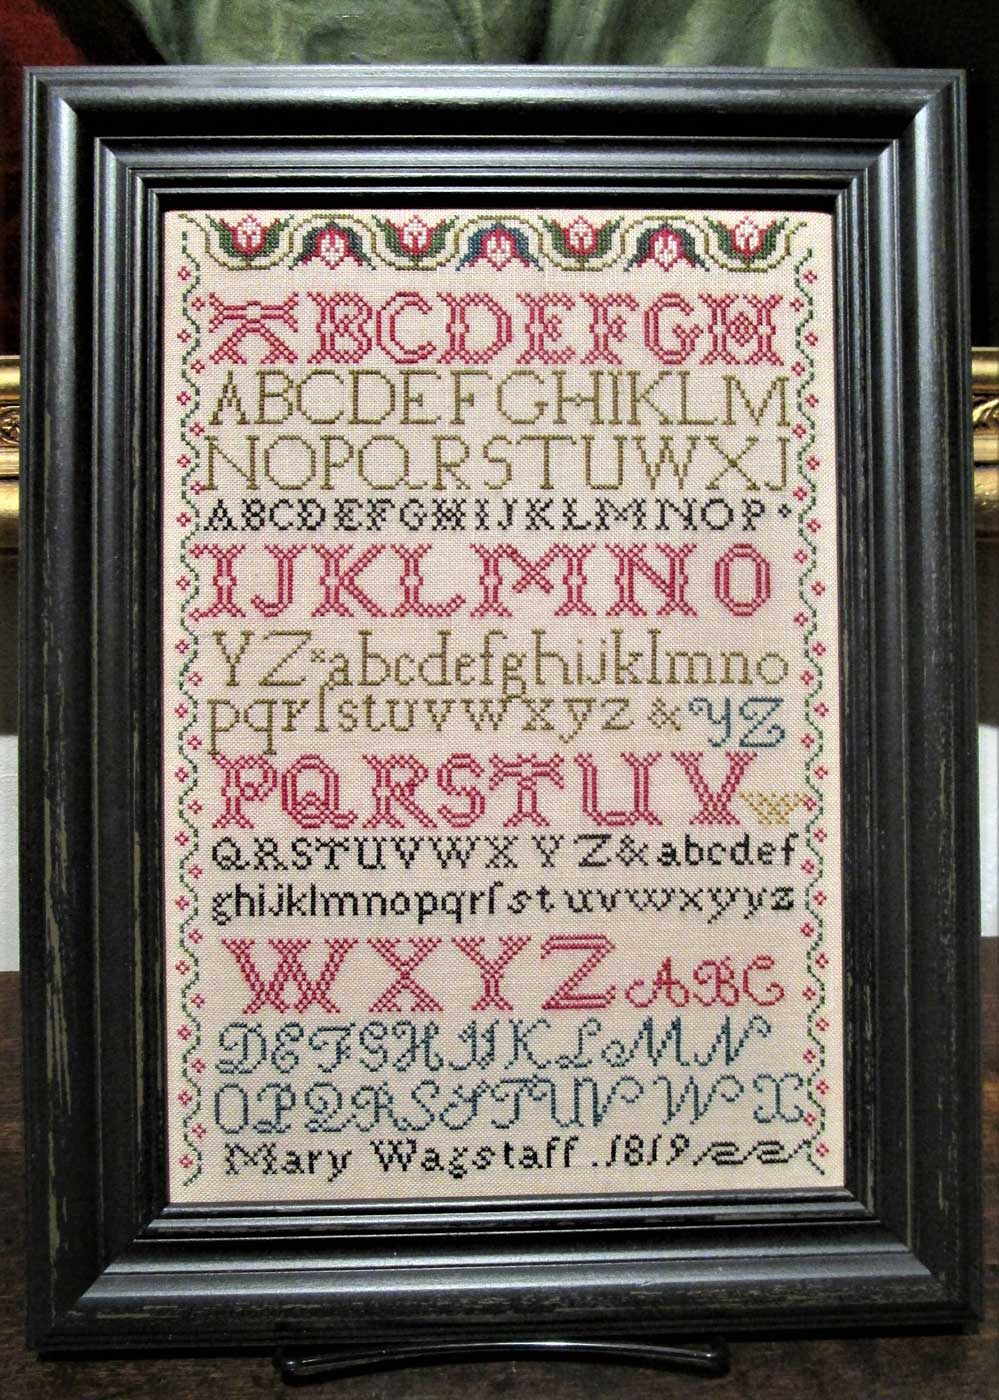 ABCDEFGH
ABCDEFGHIKLM
NOPQRSTUWXJ
ABCDEFGHIJKLMNOP
IJKLMNO
YZ×abcdefghijklmno
pqrſstuvwxyz & YZ
PQRSTUV
QRSTUVWXYZ&abcdef
ghijklmnopqrſstuvwxyyz
WXYZ ABC
DEFGHIJKLMN
OPQRSSTUVWX
Mary Wagstaff . 1819